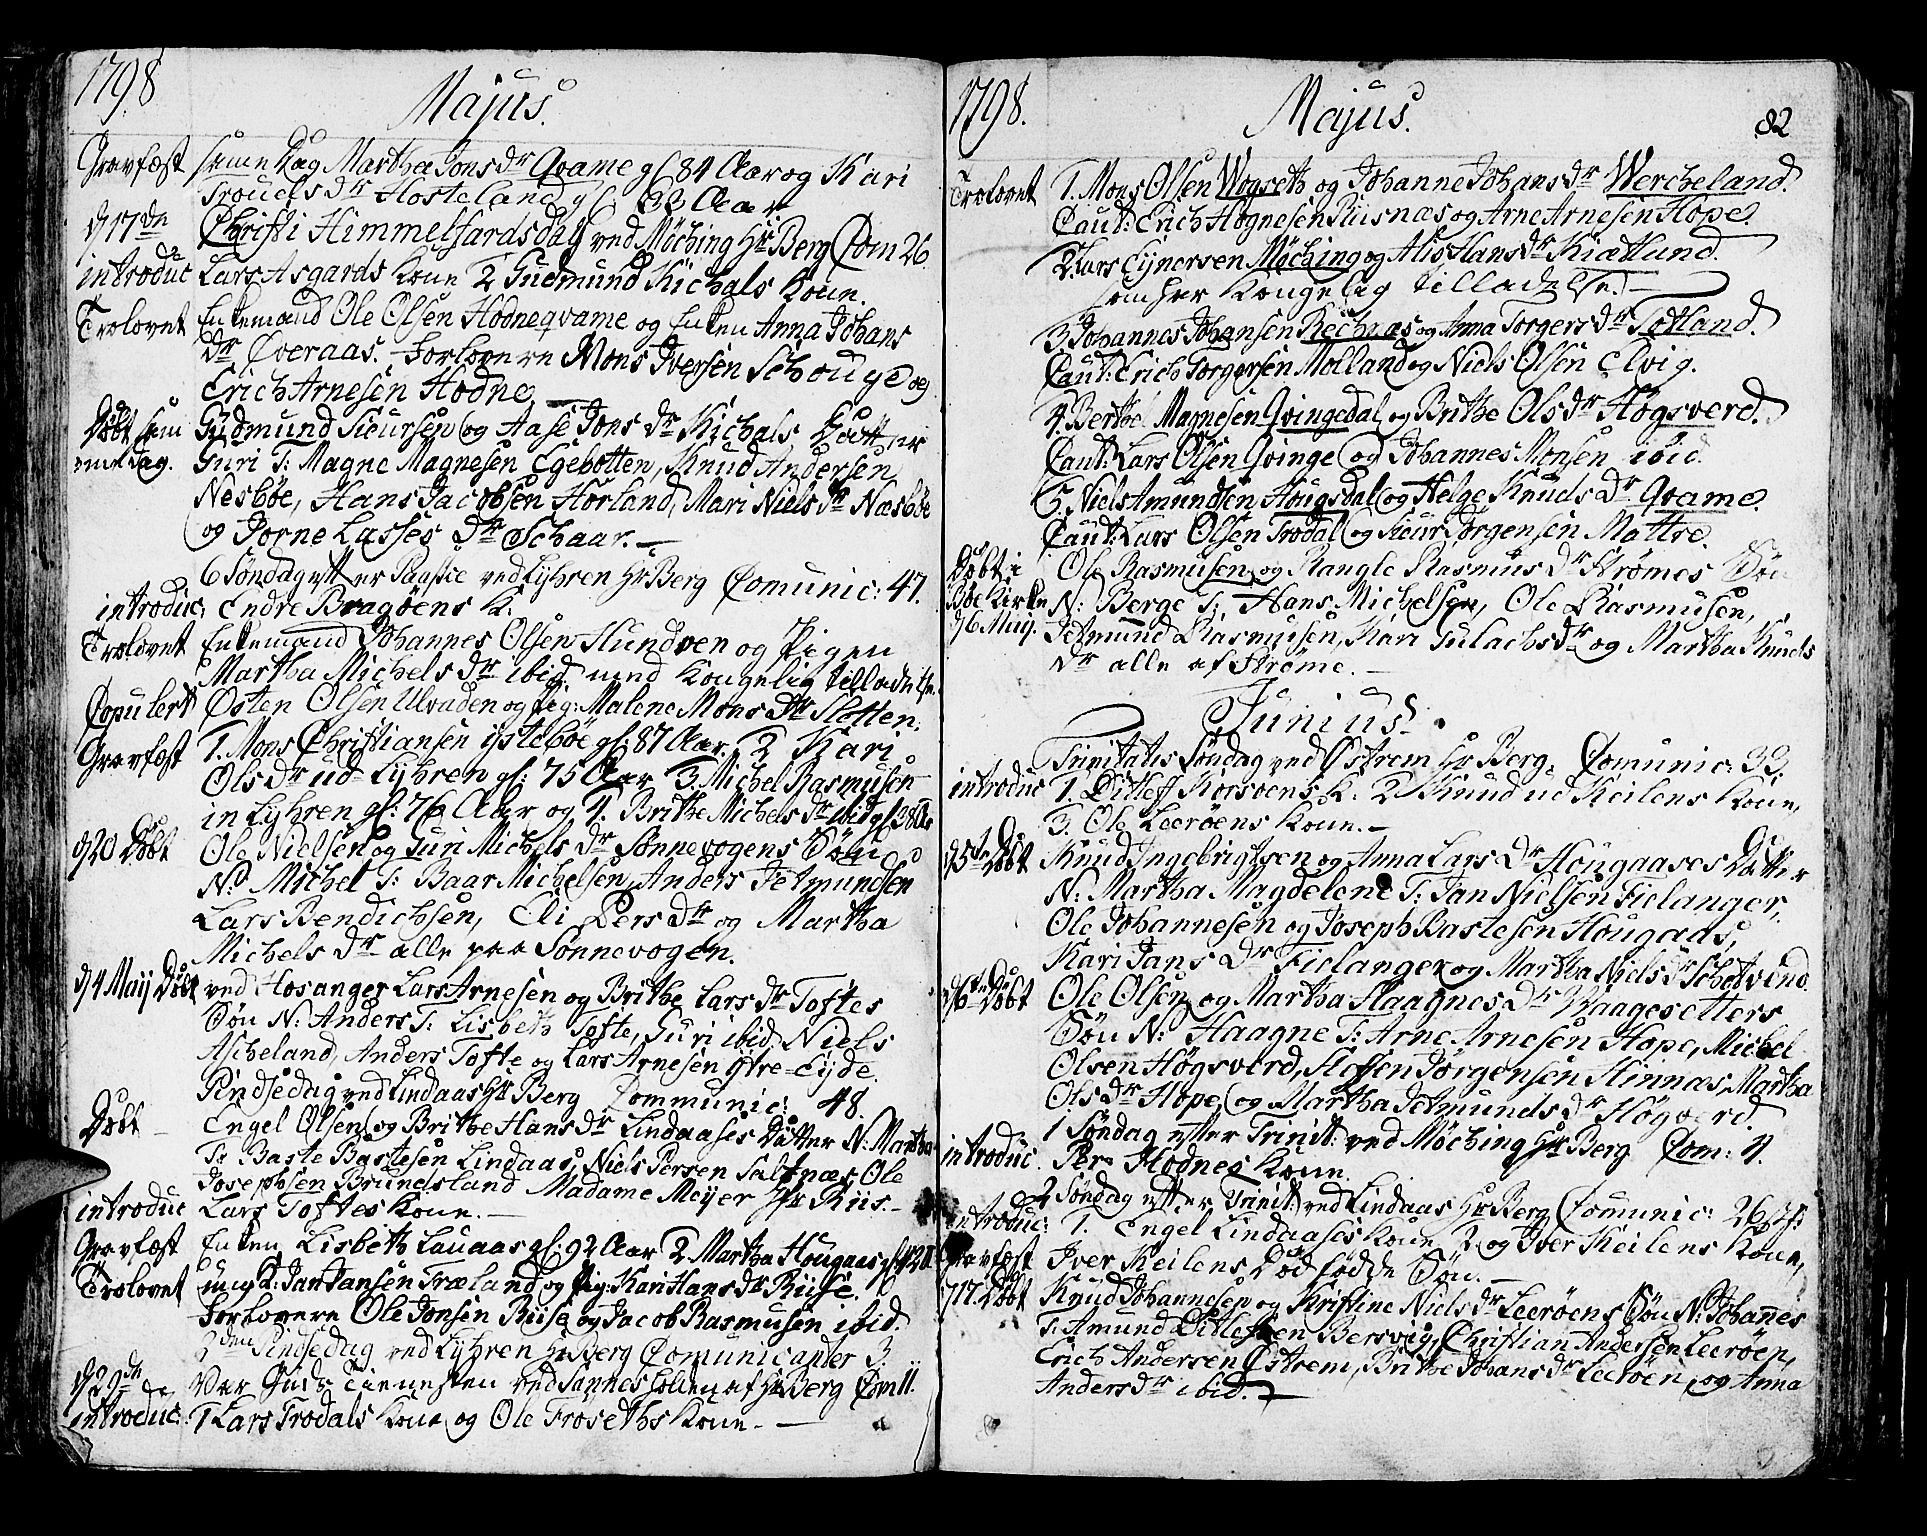 1798
Majus.
Gravfæst same Dag Martha Jons dr Qvame gl 84 Aar og Kari
Trouels dr Hosteland gl. 33 Aar
d 17de Christi Himmelfardsdag ved Möching Hr Berg Com 26.
introduc Lars Asgards Kone 2 Gudmund Kichals Kone.
Trolovet Enkemand Ole Olsen Hodneqvame og Enken Anna Johans
dr Overaas. Forlovere Mons Iversen Schouge og
Erich Arnesen Hodne
Døbt sam Gudmund Siversen og Aase Jons dr Kichals Datter
me dag. Guri T: Magne Magnesen Egebotten, Knud Andersen
Nesböe, Hans Jacobsen Horland, Mari Niels dr Næsböe
og Jorne Lasses dr Schaar.
6 Söndag efter Paaske ved Lyhren Hr Berg Comunic: 47.
introduc: Endre Bragöens K.
Trolovet Enkemand Johannes Olsen Hundven og Pigen
Martha Michels dr ibid med Kongelig tilladelse.
Copulert Østen Olsen Ulvaden og Pig: Malene Mons dr Slotten.
Gravfæst 1. Mons Christiansen ystebøe gl 87 Aar. 2 Kari
Ols dr ud Lyhren gl: 75 Aar 3 Michel Rasmusen
in Lyhren gl: 76 Aar og 4. Brithe Michels dr ibid gl 38 Aar
d 20 Døbt Ole Nielsen og Guri Michels dr Sønnevogens Søn
N. Michel T: Baar Michelsen, Anders Jetmundsen
Lars Bendichsen, Eli Pers dr og Martha
Michels dr alle paa Sønnevogen.
d 4 Maij Døbt ved Hosanger Lars Arnesen og Brithe Lars dr Toftes
Søn N: Anders T: Lisbeth Tofte, Guri ibid Niels
Ascheland, Anders Tofte og Lars Arnesen ytre-Eijde.
Pindsedag ved Lindaas Hr Berg Communic: 48.
Døbt Engel Olsen og Brithe Hans dr Lindaases Datter N: Martha
T: Baste Bastesen Lindaas, Niels Persen Saltnæs Ole
Josephsen Brundsland Madame Meijer Hr Riis.
introduc Lars Toftes Kone.
Gravfæst Enken Lisbeth Lauaas gl. 92 Aar 2 Martha Hougaas gl 42 A
Trolovet ung K: Jan Jansen Træland og Pig: Kari Hans dr Riise.
Forlovere Ole Jonsen Riise og Jacob Rasmusen ibid.
2den Pindsedag ved Lyhren Hr Berg Comunicanter 3.
d 29de Var Guds Tienesten ved Sannes holden af Hr Berg Com 11.
introduc: 1 Lars Trodals Kone og Ole Froseths Kone
1798.
Majus.
82
Trolovet 1. Mons Olsen Wogseth og Johanne Johans dr Wercheland.
Caut: Erich Høgnesen Riisnæs og Arne Arnesen Hope.
2. Lars Eijnersen Möching og Alis Hans dr Kiætland.
som her Kongelig tilladelse.
3 Johannes Johansen Rechnæs og Anna Torgers dr Totland.
Caut: Erich Torgersen Molland og Niels Olsen Elvig.
4 Berthe Magnesen Qvingedal og Brithe Ols dr Høgsverd.
Caut: Lars Olsen Qvinge og Johannes Monsen ibid.
5. Niels Amundsen Hougsdal og Helge Knuds dr Qvame.
Caut: Lars Olsen Trodal og Siver Jorgensen Mattre.
Døbt i Ole Rasmusen og Rangle Rasmus dr Strømes Søn
Bøe Kirke N: Berge T: Hans Michelsen, Ole Rasmusen,
d 6 Maij. Jetmund Rasmusen, Kari Gulachs dr og Martha Knuds
dr alle af Strøme.
Junius
Trinitatis Søndag ved Østrem Hr Berg. Comunic: 33.
introduc 1. Ditleff Korsvens K. 2 Knud ud Keilens Kone,
3. Ole Leerøens Kone.
d 5te Døbt Knud Ingebrigtsen og Anna Lars dr Hougaases Datter
N: Martha Magdelene T: Jan Nielsen Fielanger,
Ole Johannesen og Joseph Bastesen Hougaas,
Kari Jans dr Fielanger og Martha Niels dr Schotvend.
d 6te Døbt Ole Olsen og Martha Haagnes dr Waagesetters
Søn N: Haagne T: Arne Arnesen Hope, Michel
Olsen Høgsverd, Steffen Jörgensen Hinnæs, Martha
Ols dr Hope og Martha Jetmunds dr Høgverd.
1 Søndag efter Trinit: ved Möching Hr Berg Com: 4.
introduc. Per Hodnes Kone.
2 Søndag efter Trinit: ved Lindaas Hr Berg Comunic: 26
introduc: 1. Engel Lindaases Kone 2 og Iver Keilens Kone,
Gravfæst Iver Keilens Dødfødde Søn.
d 17. Døbt Knud Johannesen og Kristine Niels dr Leerøens Søn N: Johannes
T: Amund Ditlefsen Bersvig, Christian Andersen Leerøen,
Erich Andersen Østrem, Brithe Johans dr Leerøen, og Anna
Anders dr ibid.